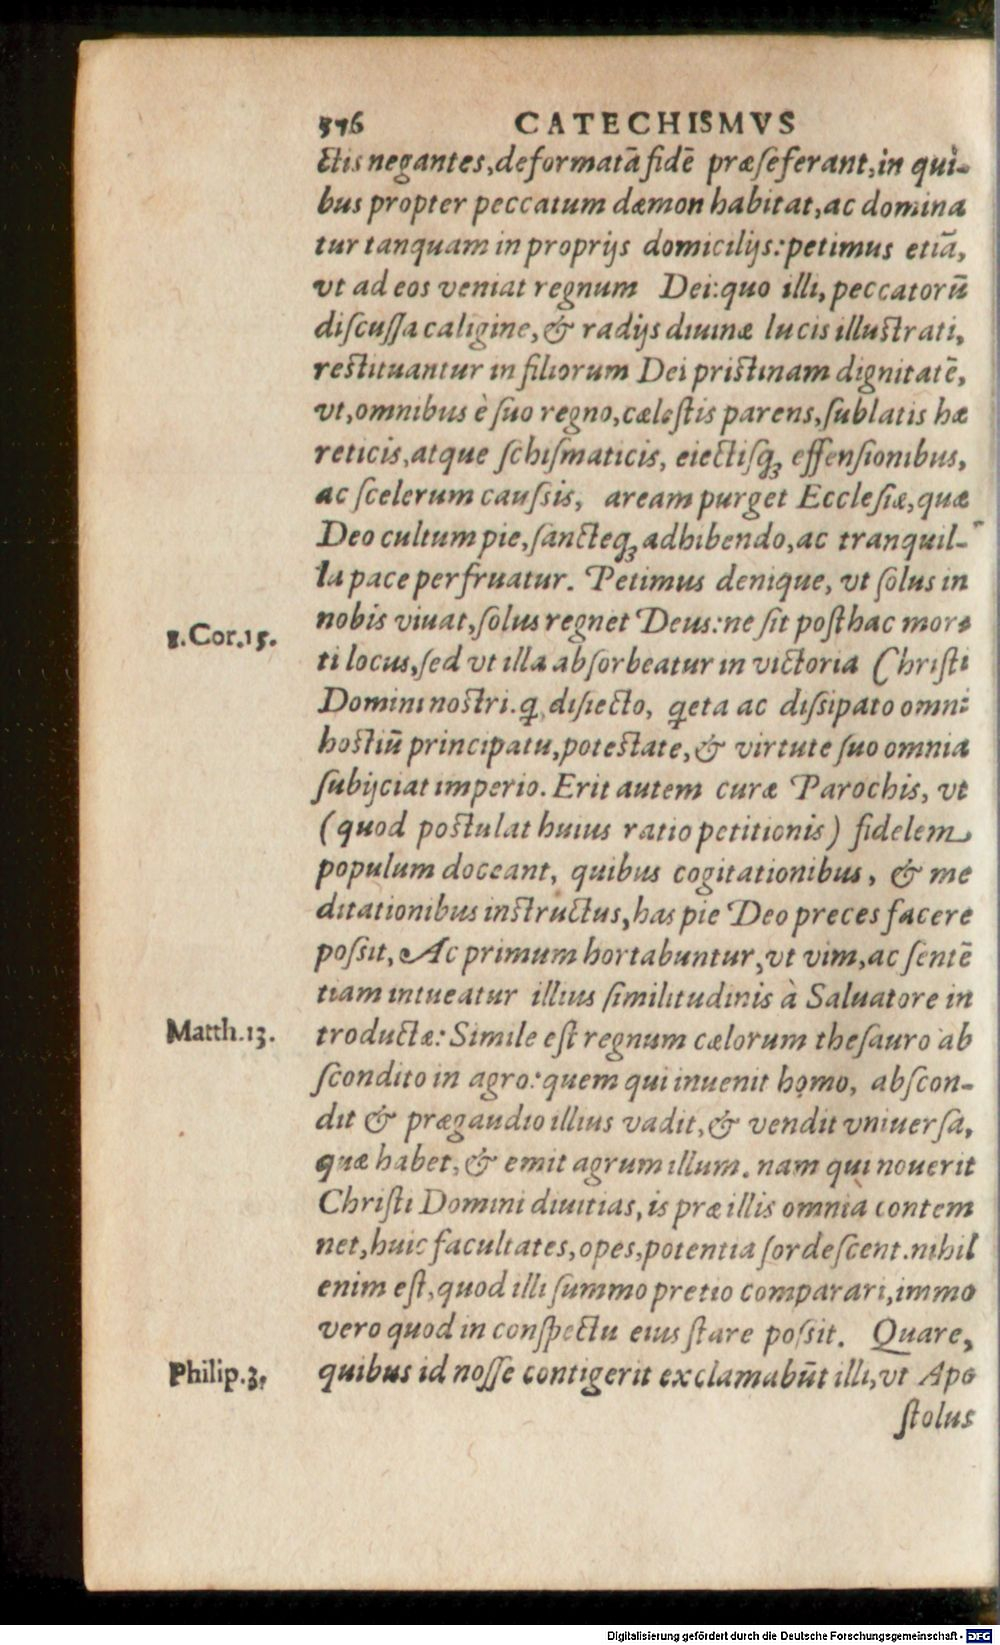 576 CATECHISMVS
ctis negantes, deformatā fidē præſeferant, in qui-
bus propter peccatum dæmon habitat, ac domina
tur tanquam in proprijs domicilijs: petimus etiā,
vt ad eos veniat regnum Dei: quo illi, peccatorū
diſcuſſa caligine, & radijs diuinæ lucis illuſtrati,
reſtituantur in filiorum Dei priſtinam dignitatē,
vt, omnibus è ſuo regno, cæleſtis parens, ſublatis hæ
reticis, atque ſchiſmaticis, eiectiſq; effenſionibus,
ac ſcelerum cauſsis, aream purget Eccleſiæ, quæ
Deo cultum pie, ſancteq; adhibendo, ac tranquil-
la pace perfruatur. Petimus denique, vt ſolus in
nobis viuat, ſolus regnet Deus: ne ſit poſthac mor-
2. Cor. 15.
ti locus, ſed vt illa abſorbeatur in victoria Chriſti
Domini noſtri. q, diſiecto, ꝗeta ac diſsipato omni
hoſtiū principatu, poteſtate, & virtute ſuo omnia
ſubijciat imperio. Erit autem curæ Parochis, vt
(quod poſtulat huius ratio petitionis) fidelem
populum doceant, quibus cogitationibus, & me
ditationibus inſtructus, has pie Deo preces facere
poſsit, Ac primum hortabuntur, vt vim, ac ſentē
tiam intueatur illius ſimilitudinis à Saluatore in
Matth. 13.
troductæ: Simile eſt regnum cælorum theſauro ab
ſcondito in agro: quem qui inuenit homo, abſcon-
dit & præ gaudio illius vadit, & vendit vniuerſa,
quæ habet, & emit agrum illum. nam qui nouerit
Chriſti Domini diuitias, is præ illis omnia contem
net, huic facultates, opes, potentia ſordeſcent. nihil
enim eſt, quod illi ſummo pretio comparari, immo
vero quod in conſpectu eius ſtare poſsit. Quare,
Philip. 3.
quibus id noſſe contigerit exclamabūt illi, vt Apo
ſtolus
Digitalisierung gefördert durch die Deutsche Forschungsgemeinschaft - DFG